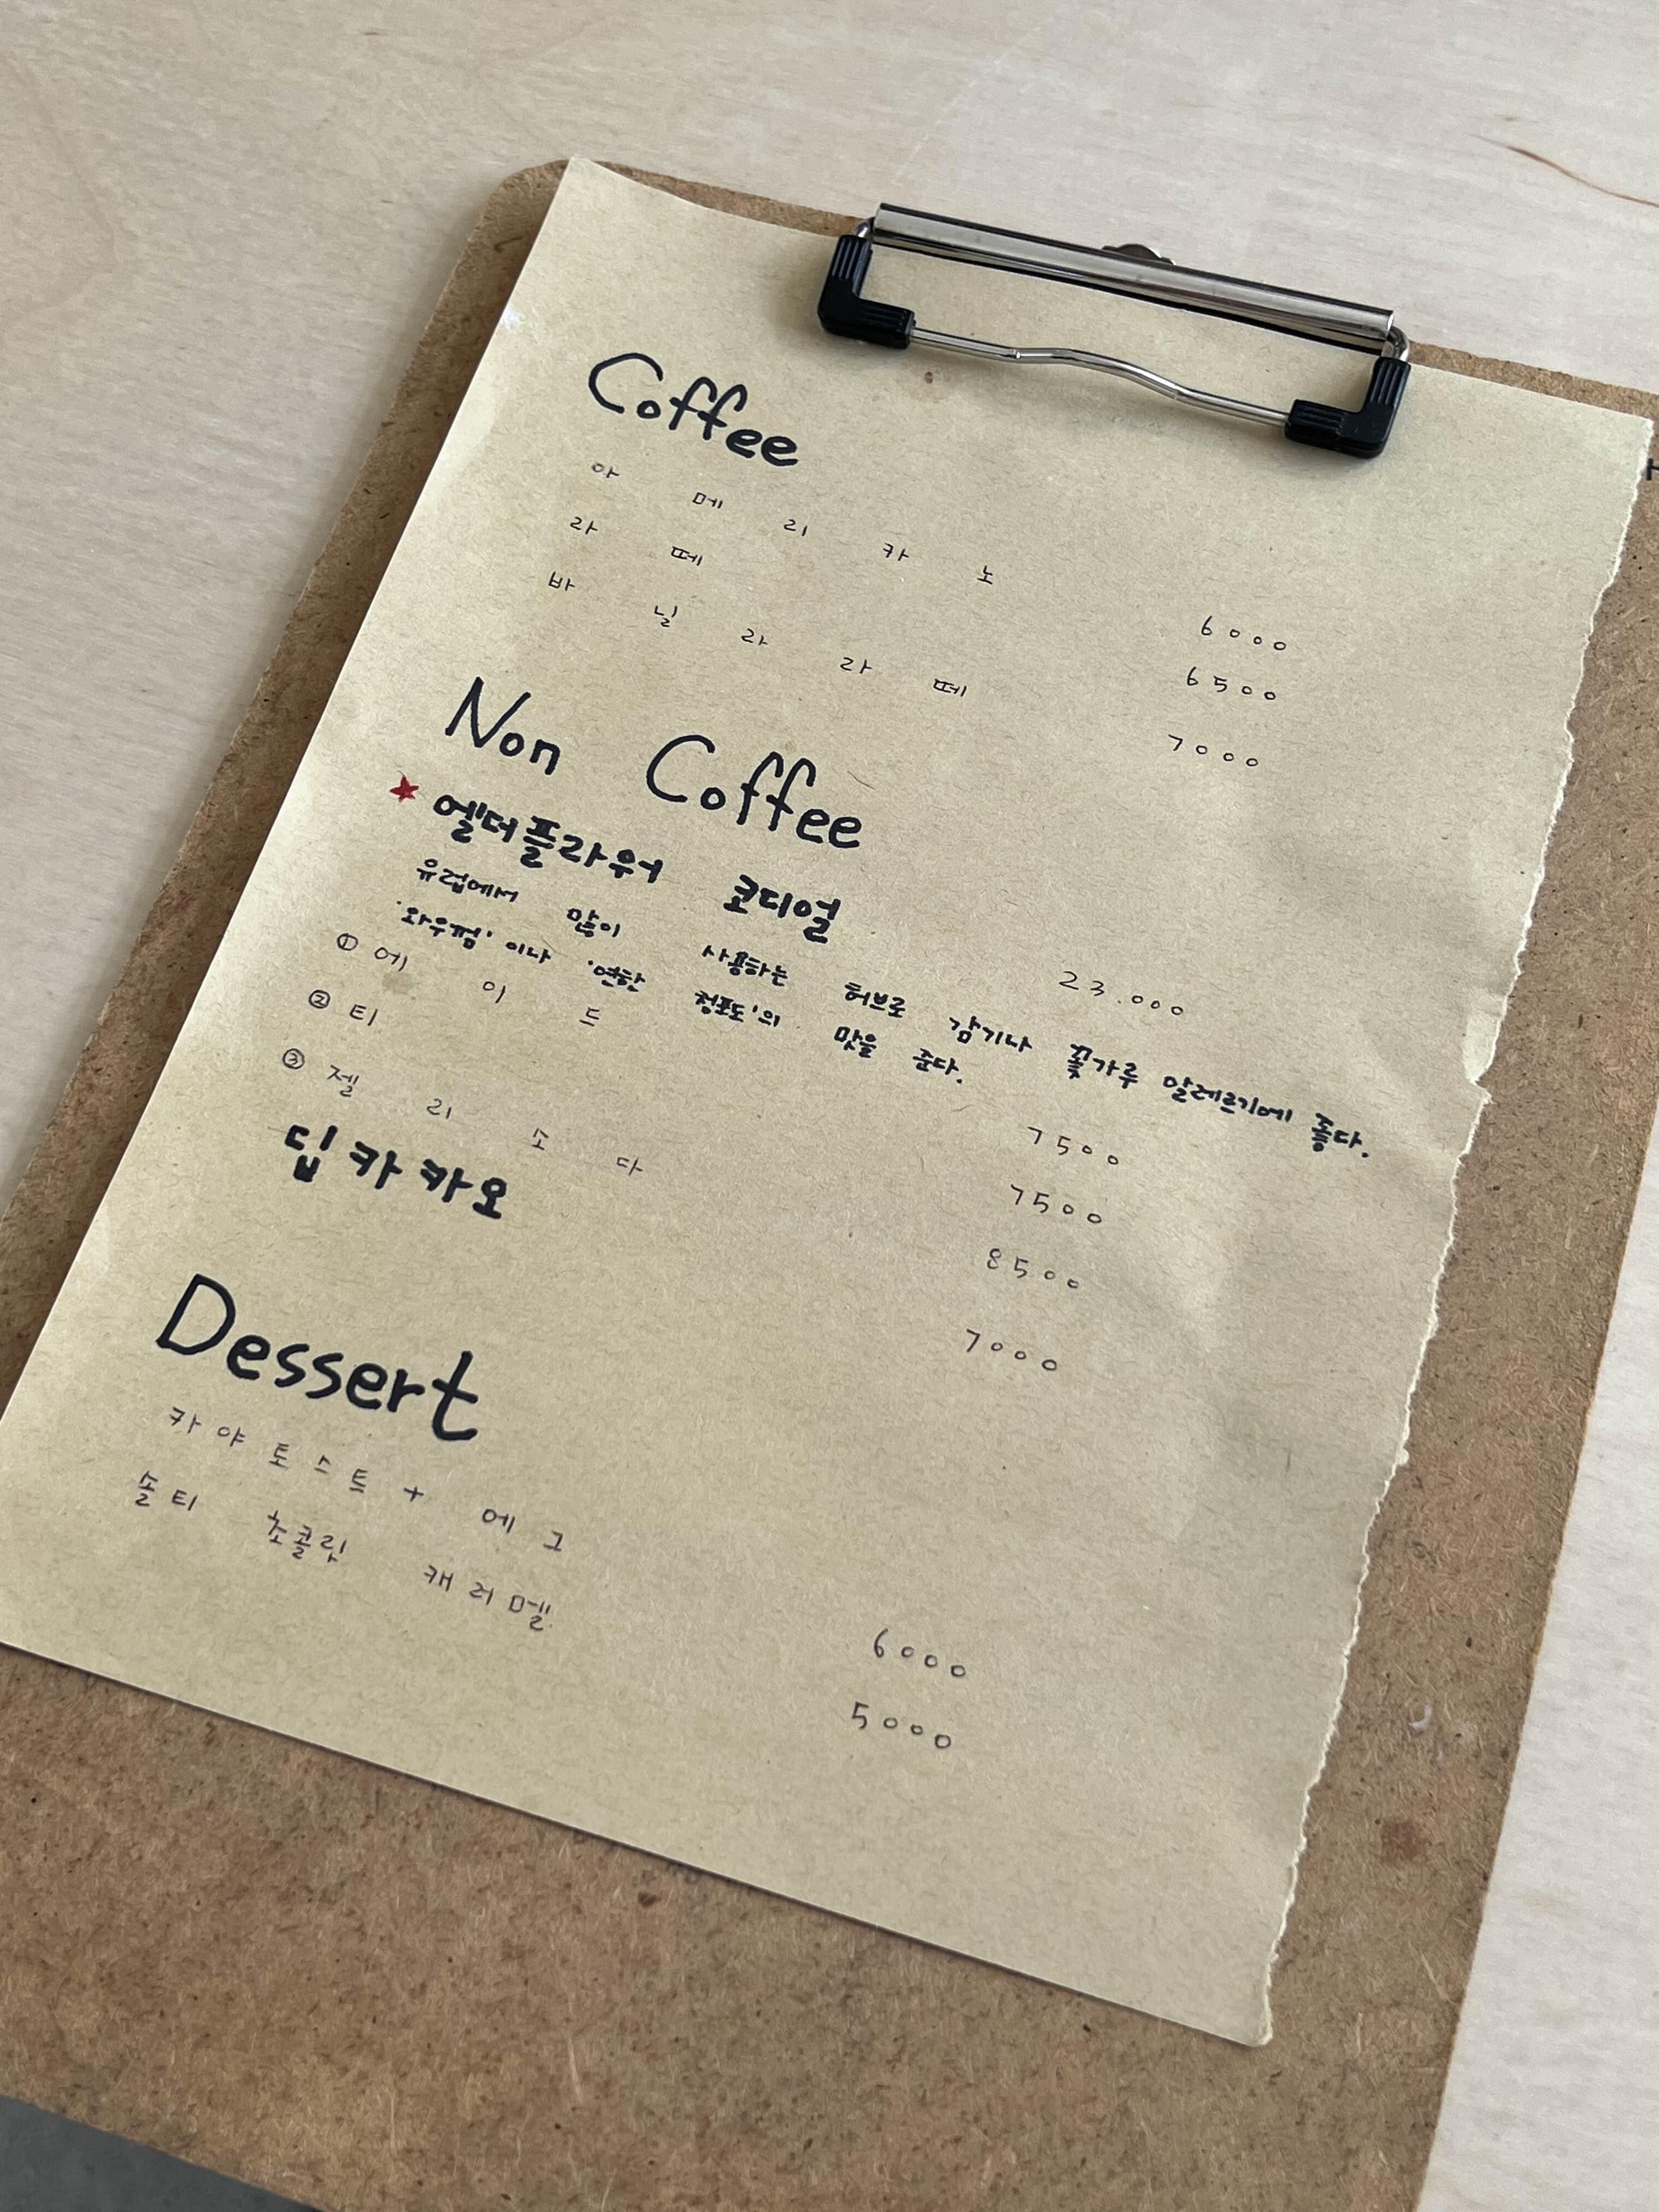 Coffee
아메리카노 6000
라떼 6500
바닐라 라떼 7000
Non Coffee
★ 엘더플라워 코디얼 23.000
유럽에서 많이 사용하는 허브로 감기나 꽃가루 알레르기에 좋다.
'와우껌' 이나 '연한 청포도'의 맛을 준다.
① 에이드 7500
② 티 7500
③ 젤리소다 8500
딥카카오 7000
Dessert
카야토스트 + 에그 6000
솔티 초콜릿 캐러멜 5000